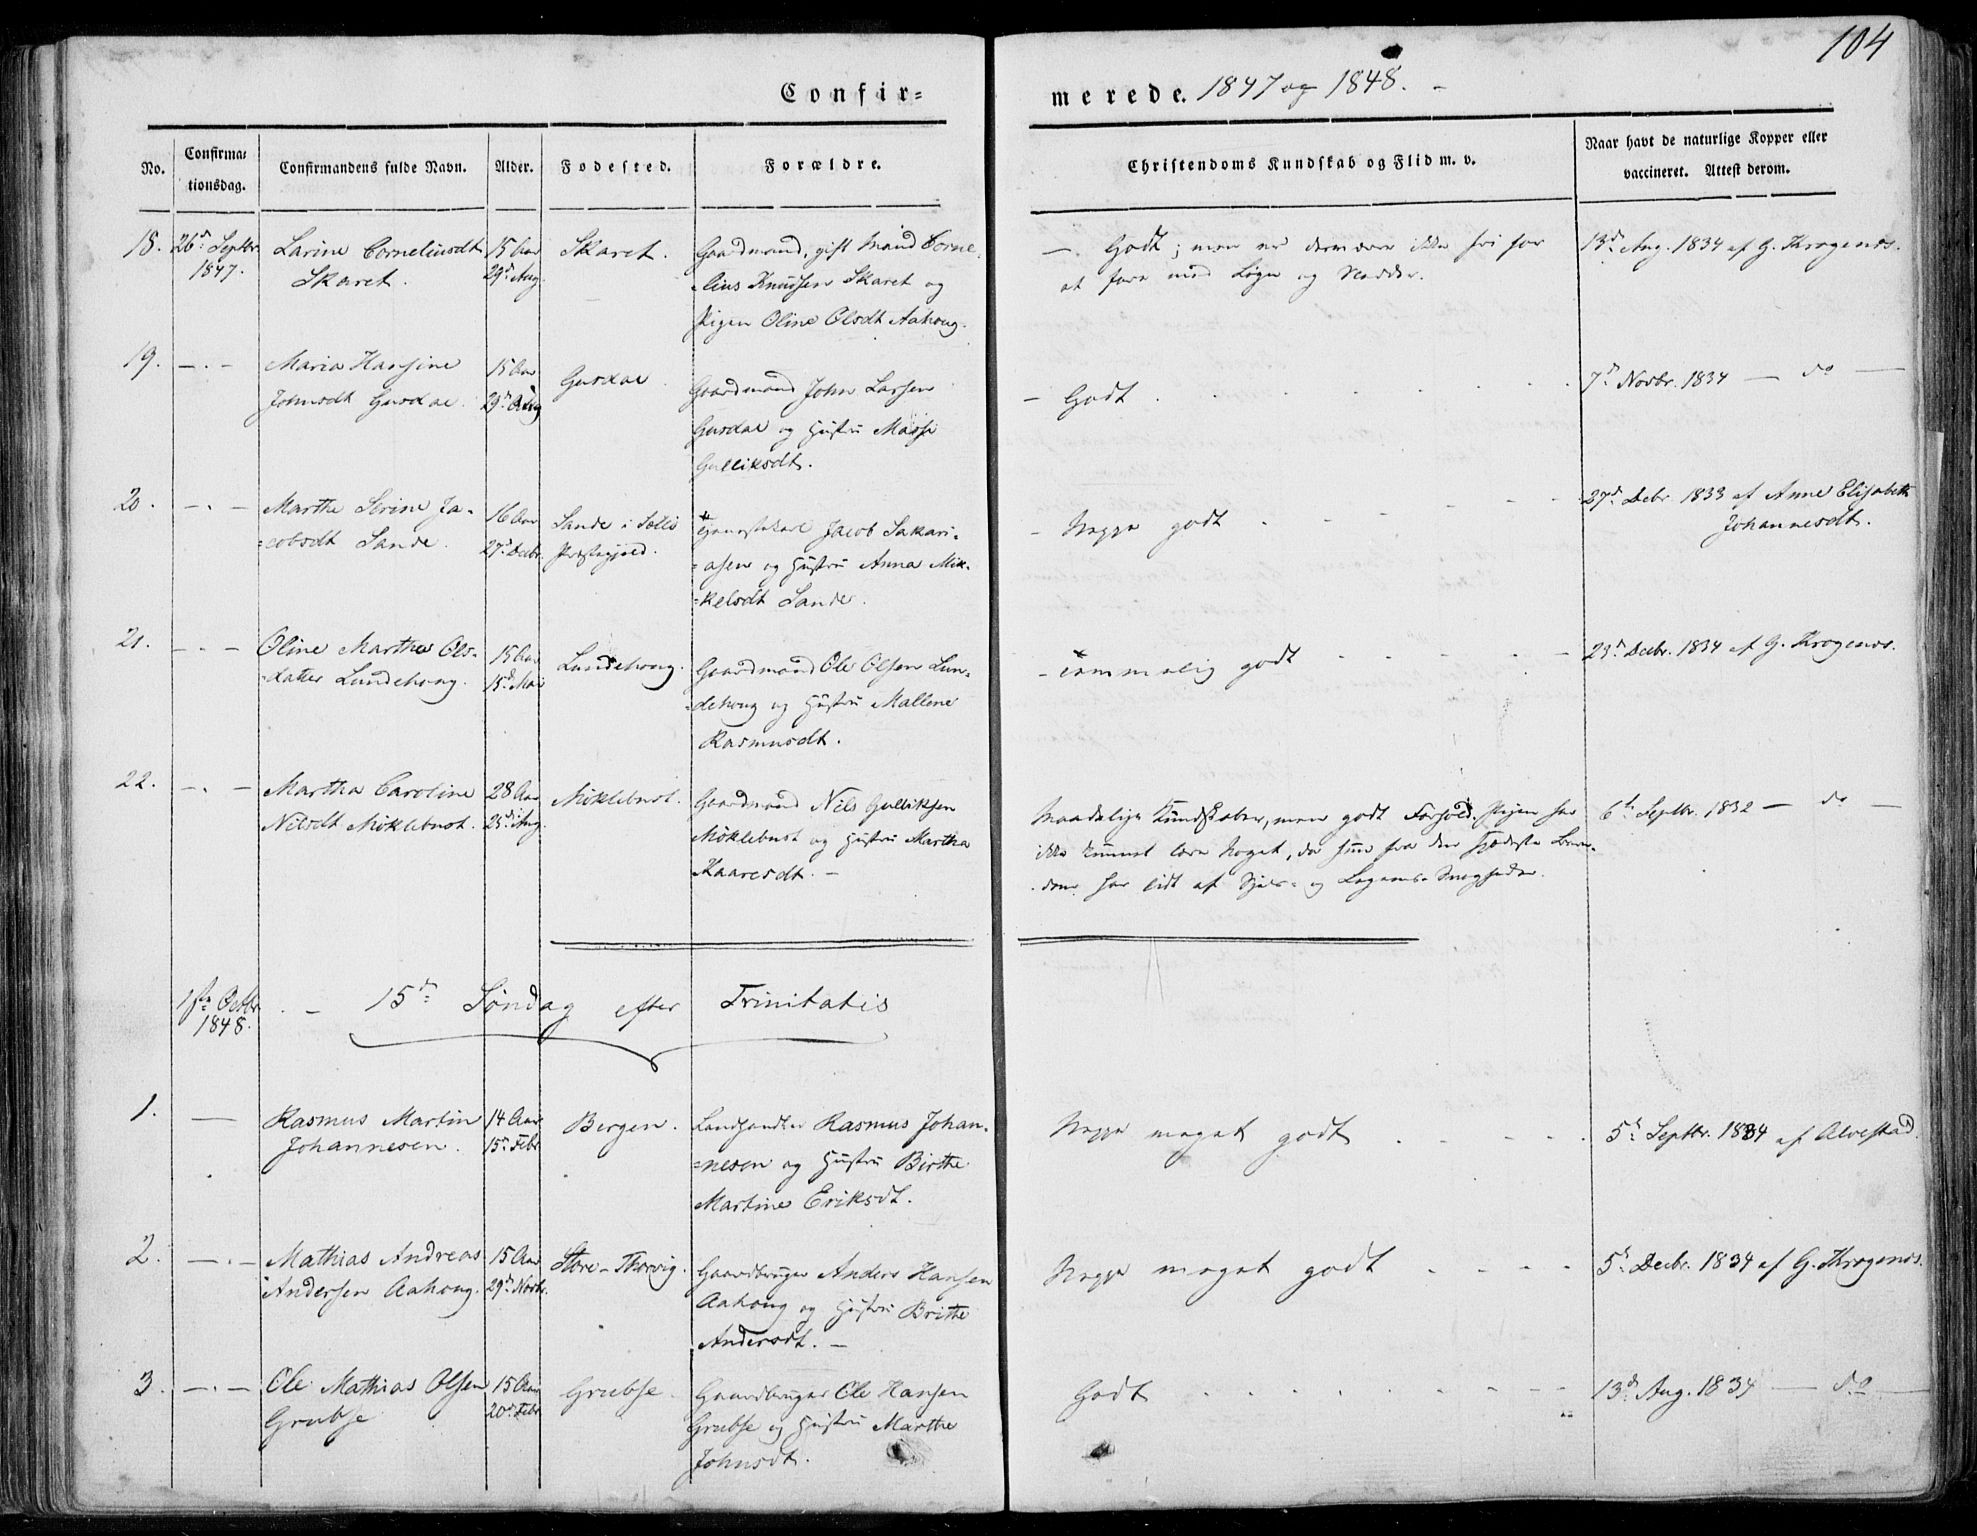 104
Confir=
merede. 1847 og 1848.
No.
Confirma=
tionsdag.
Confirmandens fulde Navn.
Alder.
Fødested.
Forældre.
Christendoms Kundskab og Flid m. v.
Naar havt de naturlige Kopper eller
vaccineret. Attest derom.
18.
26d Septbr.
1847.
Larine Corneliusdt
Skaret.
15 Aar
29d Aug.
Skaret.
Gaardmand, gift Mand Corne-
lius Knudsen Skaret og
Pigen Oline Olsdt Aahoug.
Godt; men
ikke fri for
at fare med Løgn og Sladder.
13d Aug. 1834 af G. Krogenæs.
19. — . —
Maria Hansine
Johnsdt Gusdal.
15 Aar
29d Aug
Gusdal.
Gaardmand John Larsen
Gusdal og Hustru Massi
Gulliksdt.
— Godt
7d Novbr. 1834 — do —
20. — . —
Marthe Serine Ja-
=cobsdt Sande.
16 Aar
27d Decbr.
Sande i Selös
Præstegjæld.
Jacob Sakari-
=asen og Hustru Anna Mik-
=kelsdt Sande.
— Neppe godt
27d Debr. 1833 af Anne Elisabeth
Johannesdt.
21. — . —
Oline Marthe Ols-
=datter Lundehoug.
15 Aar
15d Mai
Lundehoug.
Gaardmand Ole Olsen Lun-
=dehoug og Hustru Mallene
Rasmusdt.
— temmelig godt
23d Decbr. 1834 af G. Krogenæs.
22. — . —
Martha Caroline
Nilsdt Möklebust.
28 Aar
23d Aug.
Möklebust.
Gaardmand Nils Gulliksen
Möklebust og Hustru Martha
Kaaresdt. —
Maadelige Kundskaber, men godt Forhold. Pigen har
ikke kunnet lære Noget, da hun fra den spædeste Barn-
dom har lidt af Sjæls- og Legems-Svagheder.
6te Septbr. 1832 — do —
1ste Octbr.
1848.
— 15de Søndag efter Trinitatis
1. —
Rasmus Martin
Johannesen.
14 Aar
15d Febr
Bergen.
Landhandler Rasmus Johan-
=nesen og Hustru Birthe
Martine Eriksdt.
Neppe meget godt
5d Septbr. 1834 af Alvestad.
2. — . —
Mathias Andreas
Andersen Aahoug.
15 Aar
29d Novbr.
Store-Thorvig.
Gaardbruger Anders Hansen
Aahoug og Hustru Brithe
Andersdt. —
Neppe meget godt
5d Decbr. 1834 af G. Krogenæs.
3. — . —
Ole Mathias Olsen
Grubse
15 Aar
20d Febr
Grubse.
Gaardbruger Ole Hansen
Grubse og Hustru Marthe
Johnsdt.
Godt
13d Aug. 1834 — do —